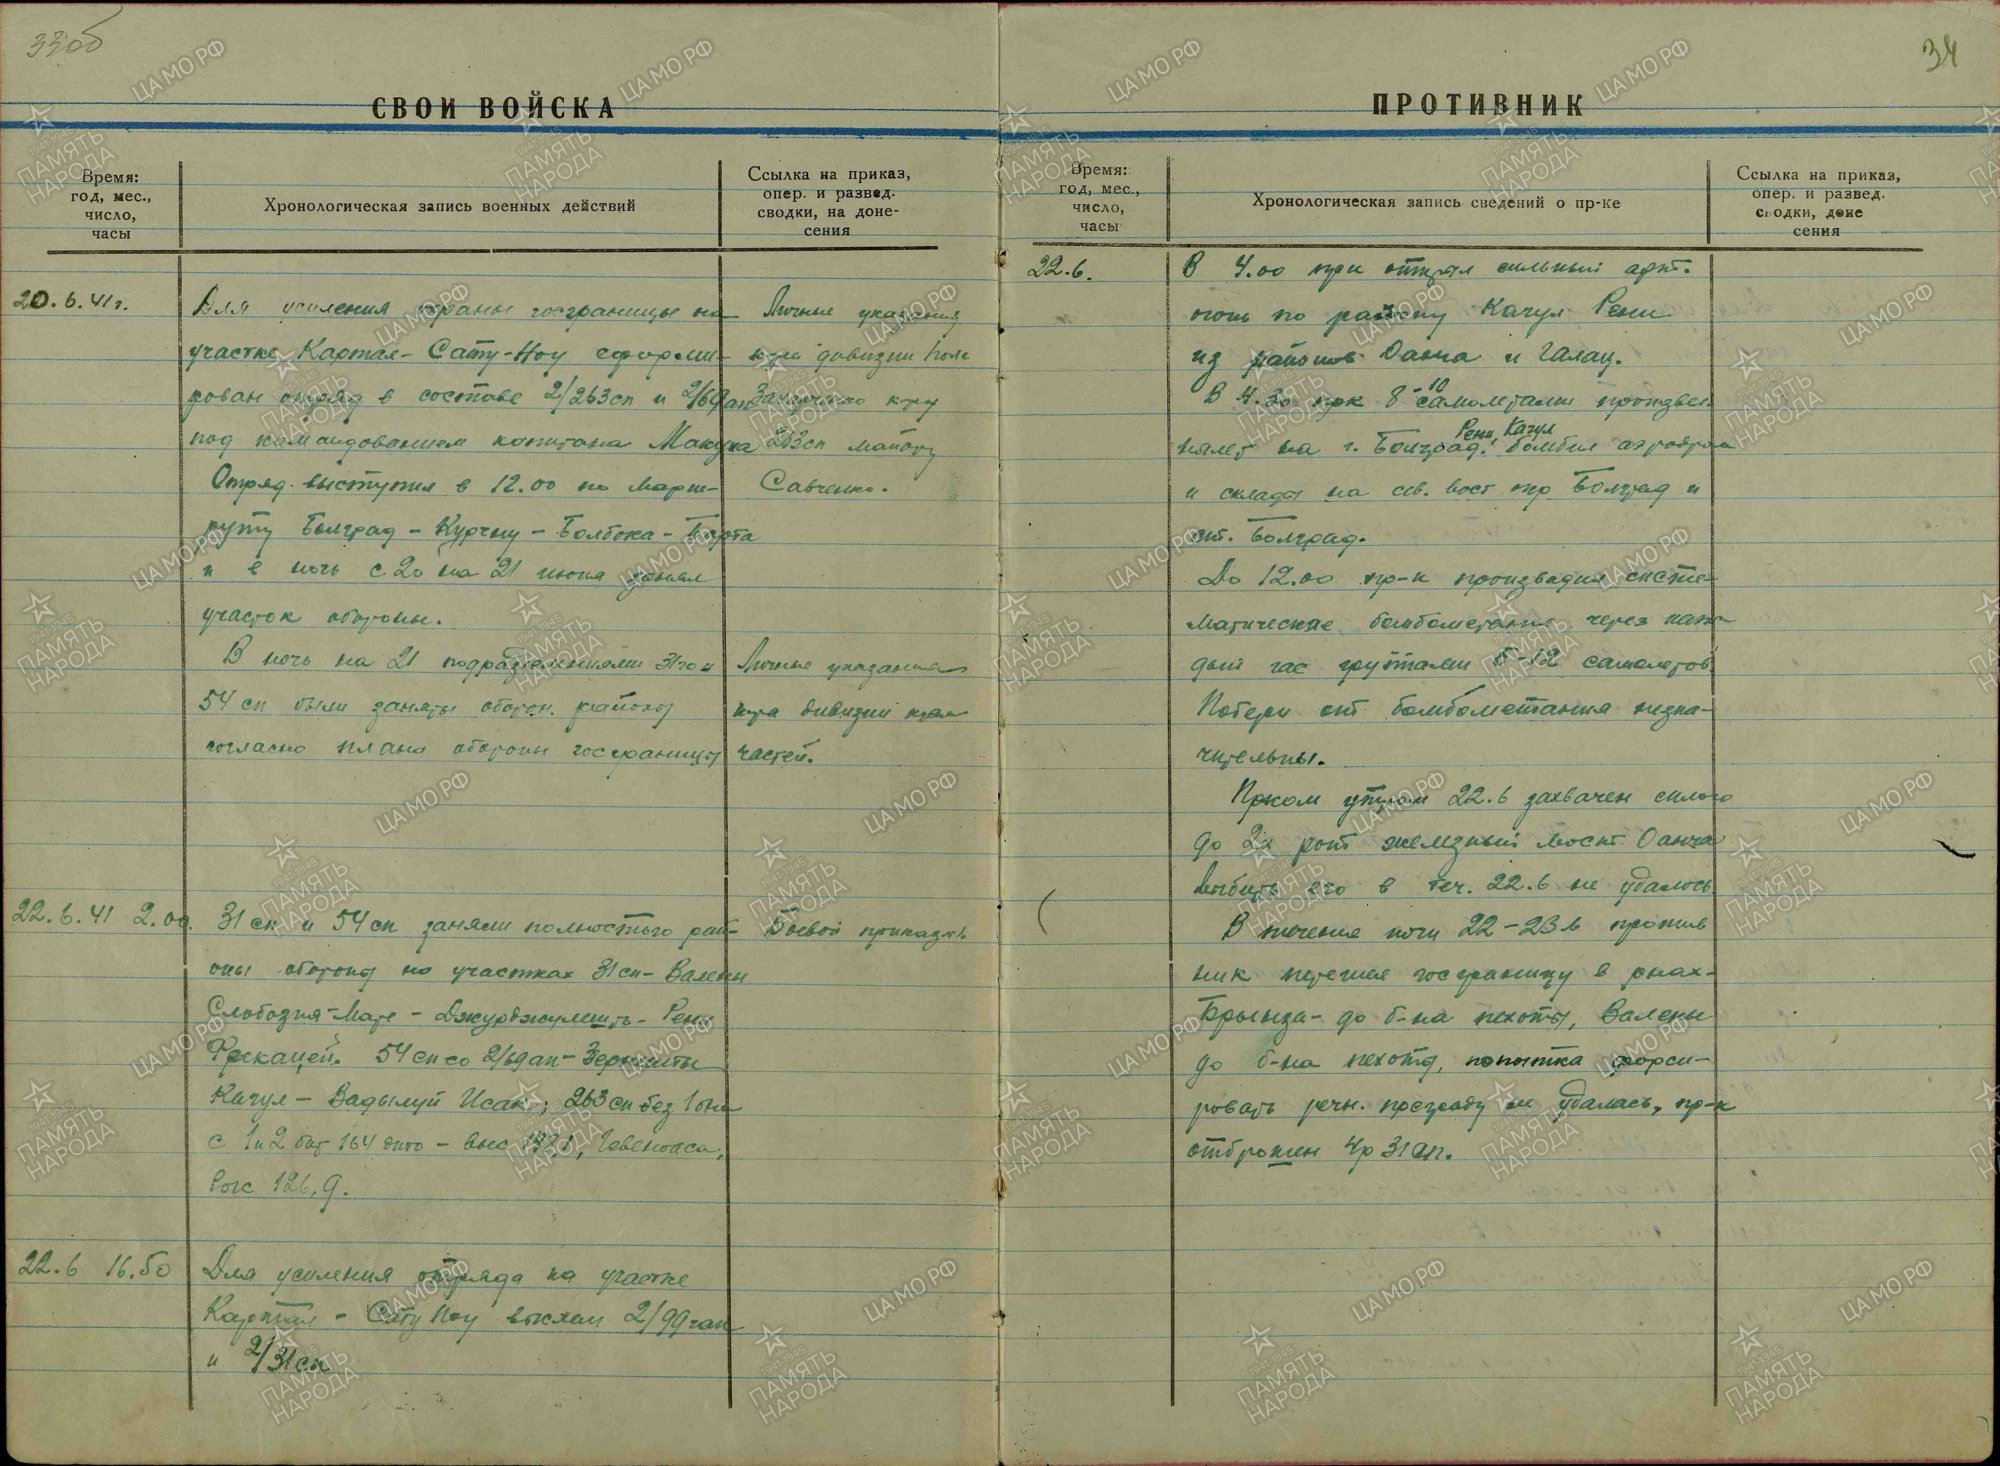 33об
34
СВОИ ВОЙСКА
Время:
год, мес.,
число,
часы
Хронологическая запись военных действий
Ссылка на приказ,
опер. и развед.
сводки, на доне-
сения
20.6.41г.
Для усиления охраны госграницы на
участке Картал - Сату-Ноу сформи-
рован отряд в составе 2/263сп и 2/69ап
под командованием капитана
Отряд выступил в 12.00 по марш-
руту Болград - Курчну - Болбока - Барта
и в ночь с 20 на 21 июня занял
участок обороны.
Личные указания
к-ра дивизии полк
Захарченко к-ру
263сп майору
Савченко.
В ночь на 21 подразделениями 31го и
54 сп были заняты оборон. районы
согласно плана обороны госграницы
Личные указания
к-ра дивизии к-рам
частей.
22.6.41 2.00.
31 сп и 54 сп заняли полностью рай-
оны обороны на участках 31сп - Валени
Слободзия-Маре - Джурджулешть - Рени
54 сп со 2/69ап - Зернешты
Кагул - Вадылуй Исак; 263 сп без 1 б-на
с 1 и 2 бат 164 - выс
выс 126,9.
Боевой приказ №
22.6 16.50
Для усиления отряда на участке
Картал - Сату Ноу выслан 2/99гап
и 2/31сп
ПРОТИВНИК
Время:
год, мес.,
число,
часы
Хронологическая запись сведений о пр-ке
Ссылка на приказ,
опер. и развед.
сводки, доне
сения
22.6.
В 4.00 пр-к открыл сильный арт.
огонь по району Кагул Рени
из районов Оанча и Галац.
В 4.30 пр-к 8-10 самолетами произвел
налет на г. Болград, Рени, Кагул бомбил аэродром
и склады на сев. вост окр Болград и
ст. Болград.
До 12.00 пр-к производил систе-
матические бомбометания через каж-
дый час группами 5-12 самолетов
Потери от бомбометания незна-
чительны.
Пр-ком утром 22.6 захвачен силою
до 2х рот железный мост Оанча
Выбить его в теч. 22.6 не удалось
В течение ночи 22-23.6 против
ник перешел госграницу в р-нах-
Брынза - до б-на пехоты, Валены
до б-на пехоты, попытка форси-
ровать речн. преграду не удалась, пр-к
отброшен 4р 31сп.
ЦА МО РФ
1941-1945
ПАМЯТЬ
НАРОДА